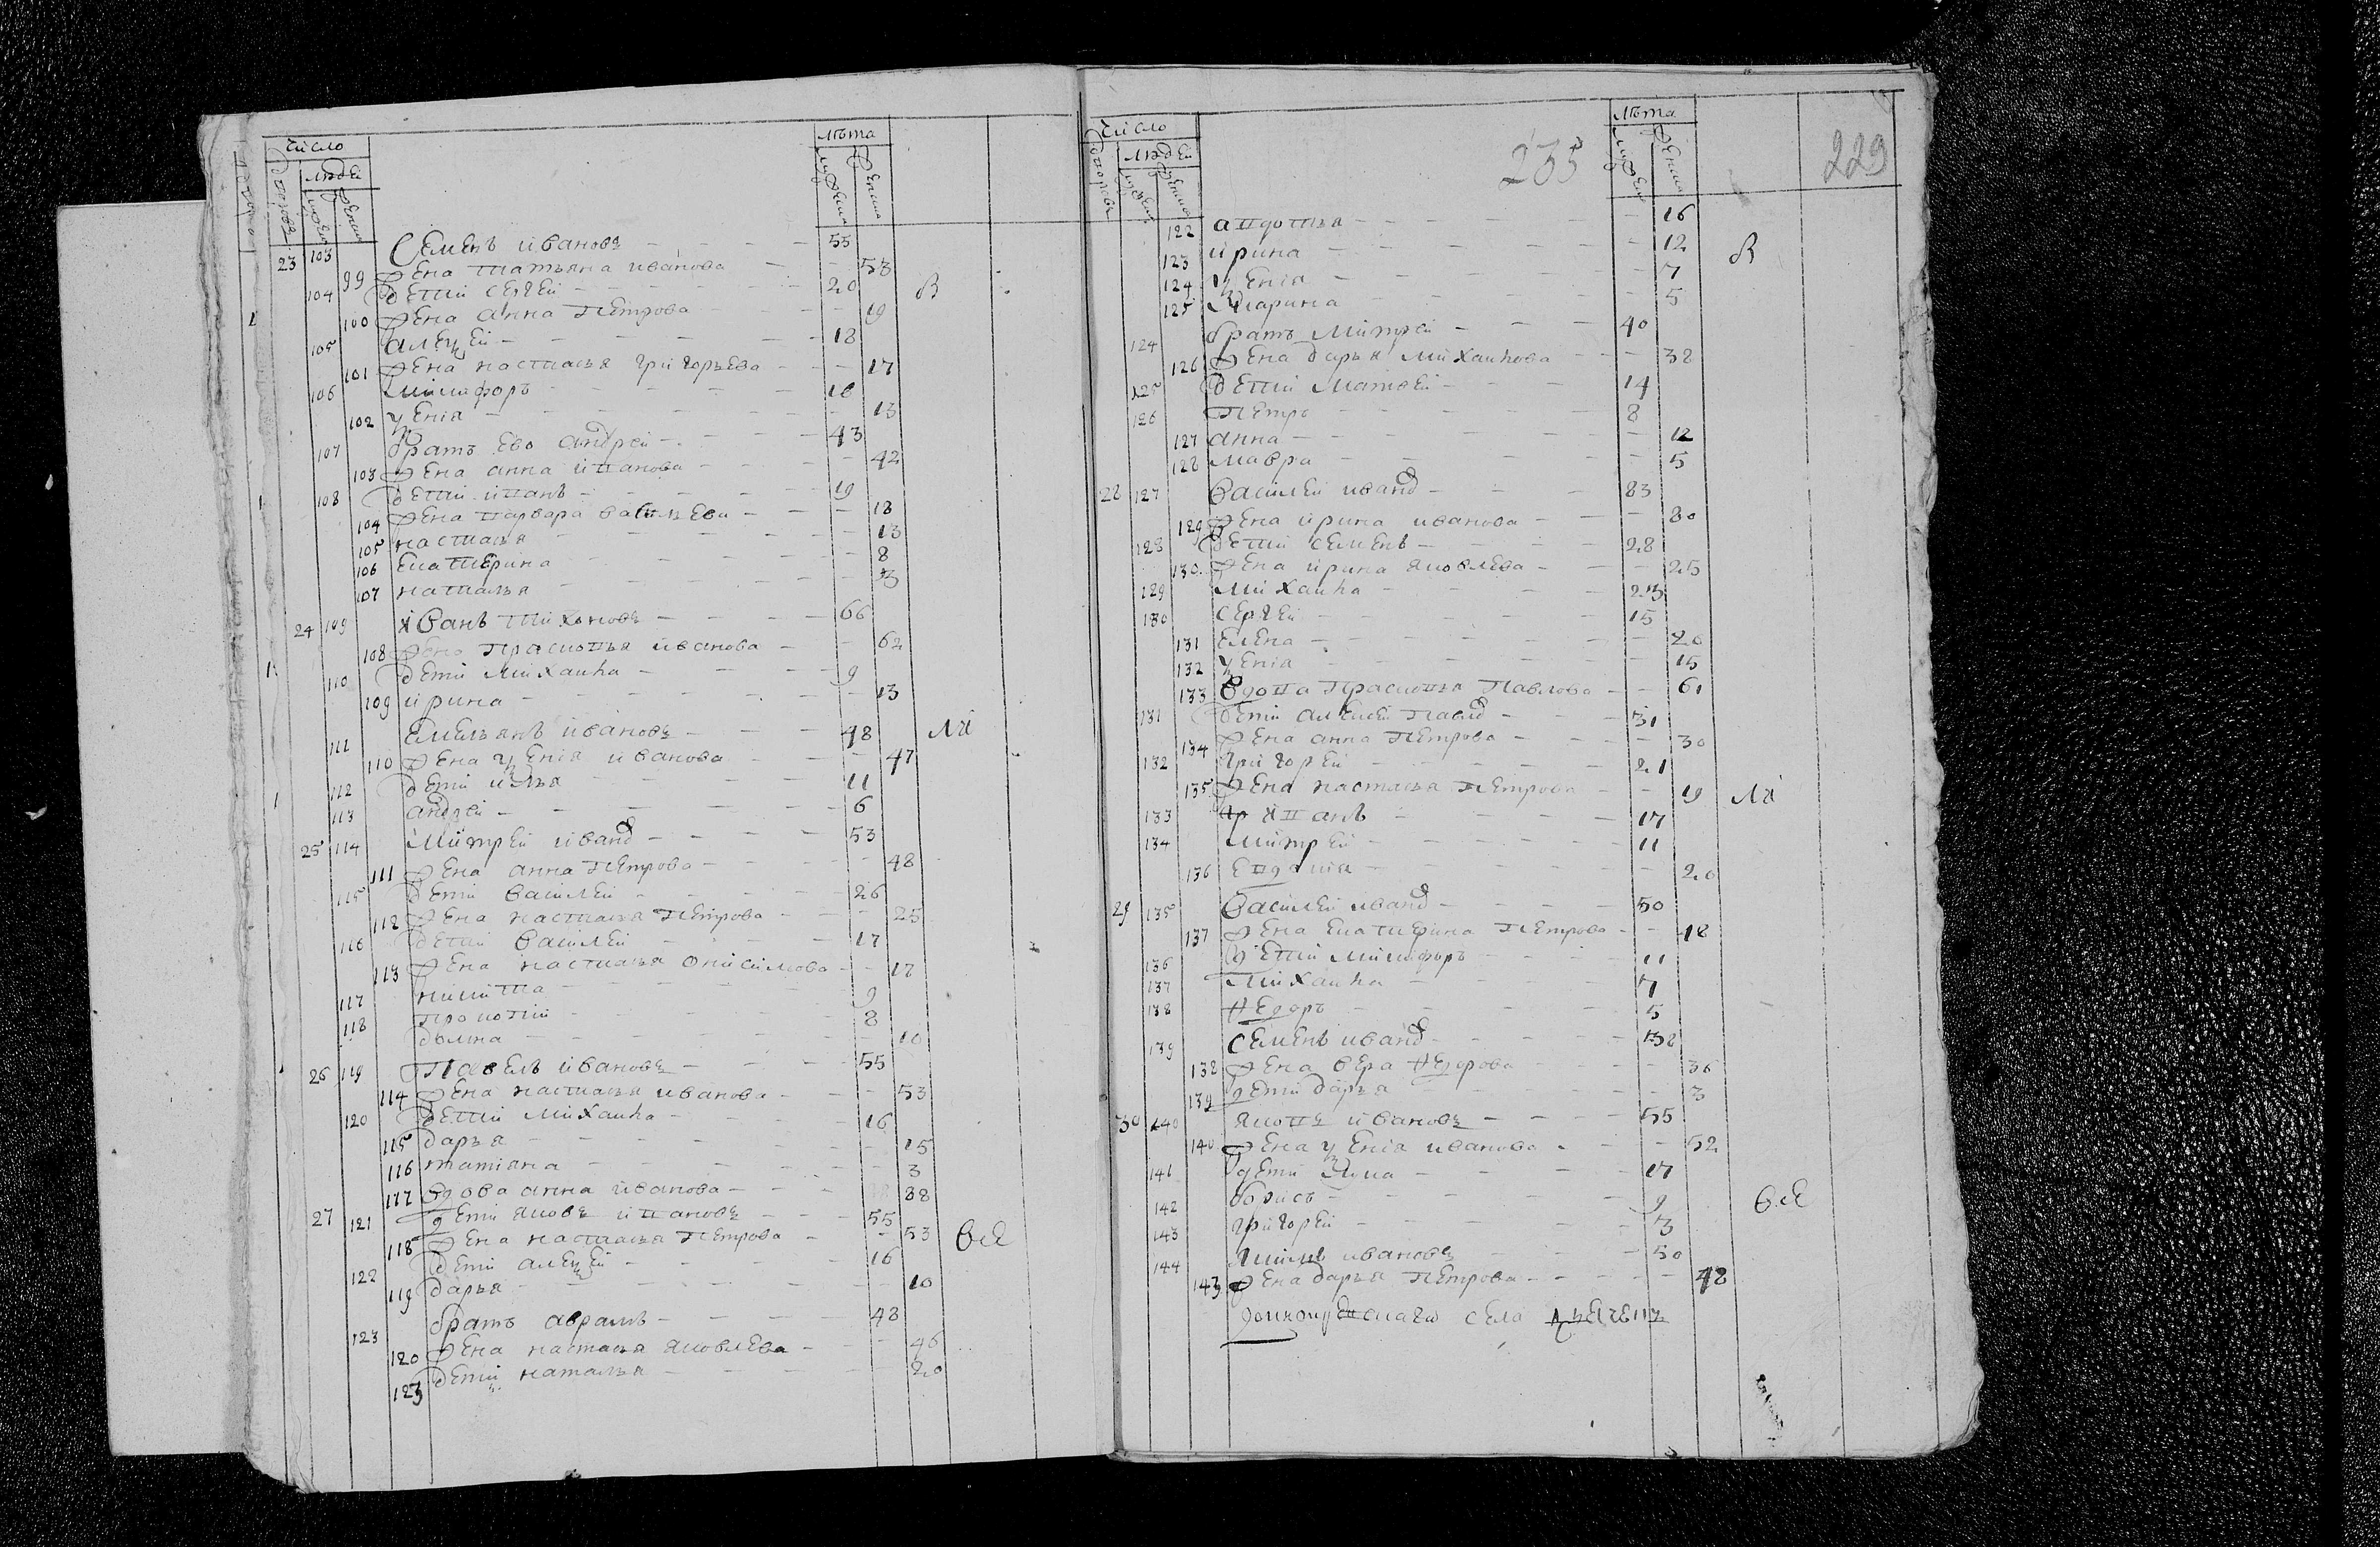 число
лѣта
дворовъ
людей
мужеи
женск
мужеи
женск
23 103 Семенъ ивановъ 55
99 жена татьяна иванова 53
104 дети сергей 20
в
100 жена анна петрова 19
105 алеѯей 18
101 жена насталья григорьева 17
106 никифоръ 16
102 ѯения 13
107 братъ ево андрей 43
103 жена анна иванова 42
108 дети иванъ 19
104 жена варвара васильева 18
105 насталья 13
106 екатерина 8
107 наталья 3
24 109 иванъ тихоновъ 66
108 жена прасковья иванова 62
110 дети михаила 9
109 ирина 13
111 емельянъ ивановъ 48
110 жена ѯения иванова 47
112 дети илья 11
113 андрей 6
25 114 митрей иванов 53
111 жена анна петрова 48
115 дети василей 26
112 жена насталья петрова 25
116 дети василей 17
113 жена насталья онисимова 17
117 никита 9
118 прокопий 8
домна 10
26 119 Павелъ ивановъ 55
114 жена насталья иванова 53
120 дети михаила 16
115 дарья 15
116 татияна 3
117 вдова анна иванова 38
27 121 дети яковъ ивановъ 55
118 жена насталья петрова 53
все
122 дети алеѯей 16
119 дарья 10
123 братъ аврамъ 48
120 жена насталья яковлева 46
123 дети наталья 20
число
лѣта
дворовъ
людей
мужеи
женск
мужеи
женск
235
229
122 авдотья 16
123 ирина 12
в
124 ѯения 7
125 марина 5
124 братъ митрей 40
126 жена дарья михаилова 38
125 дети матвей 14
126 петръ 8
127 анна 12
128 мавра 5
28 127 василей иванов 83
129 жена ирина иванова 80
128 дети семенъ 28
130 жена ирина яковлева 25
129 михаила 23
130 сергей 15
131 елена 20
132 ѯения 15
133 вдова прасковья павлова 61
131 дети алексей павлов 31
134 жена анна петрова 30
132 григорей 21
135 жена насталья петрова 19
133 иванъ 17
134 митрей 11
136 евдокия 20
29 135 василей иванов 50
137 жена екатерина петрова 18
136 дети никифоръ 11
137 михаила 7
138 федоръ 5
139 семенъ иванов 38
138 жена вера федорова 36
139 дети дарья 3
30 140 яковъ ивановъ 55
140 жена ѯения иванова 52
141 дети 17
142 борисъ 9
все
143 григорей 3
144 ивановъ 50
143 жена дарья петрова 48
села